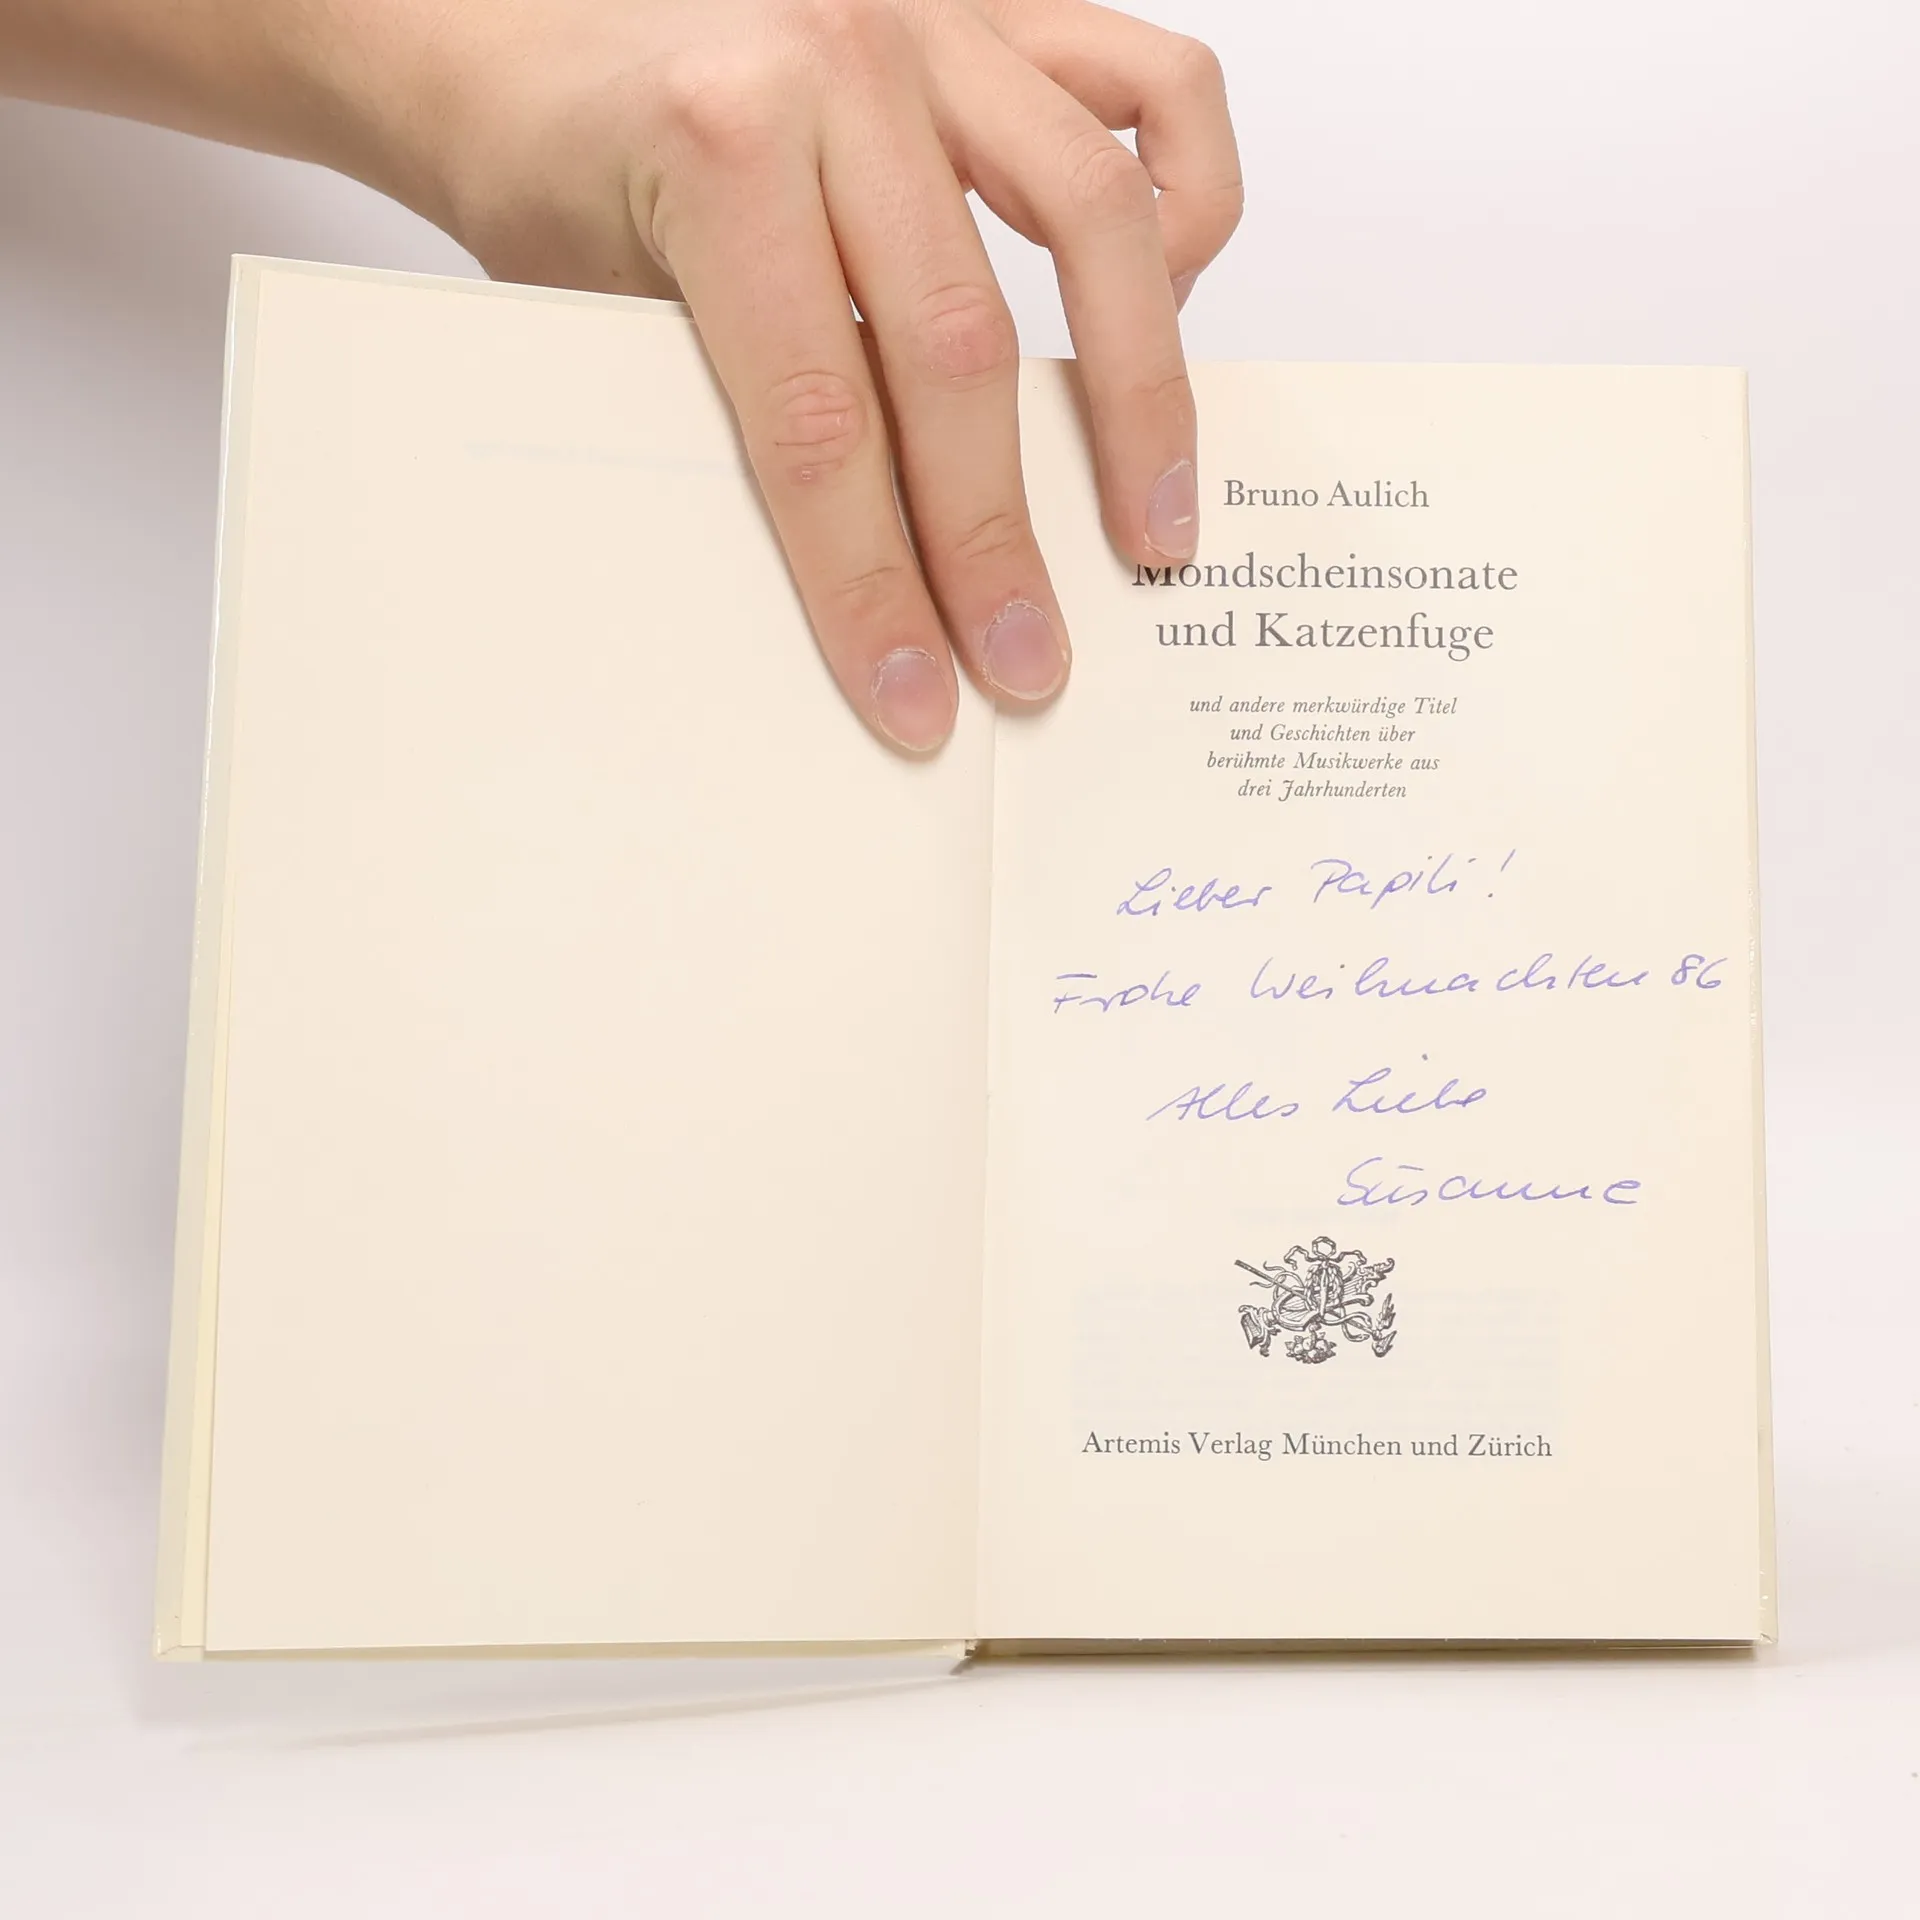 Bruno Aulich
Mondscheinsonate
und Katzenfuge
und andere merkwürdige Titel
und Geschichten über
berühmte Musikwerke aus
drei Jahrhunderten
Lieber Papili!
Frohe Weihnachten 86
Alles Liebe
Susanne
Artemis Verlag München und Zürich